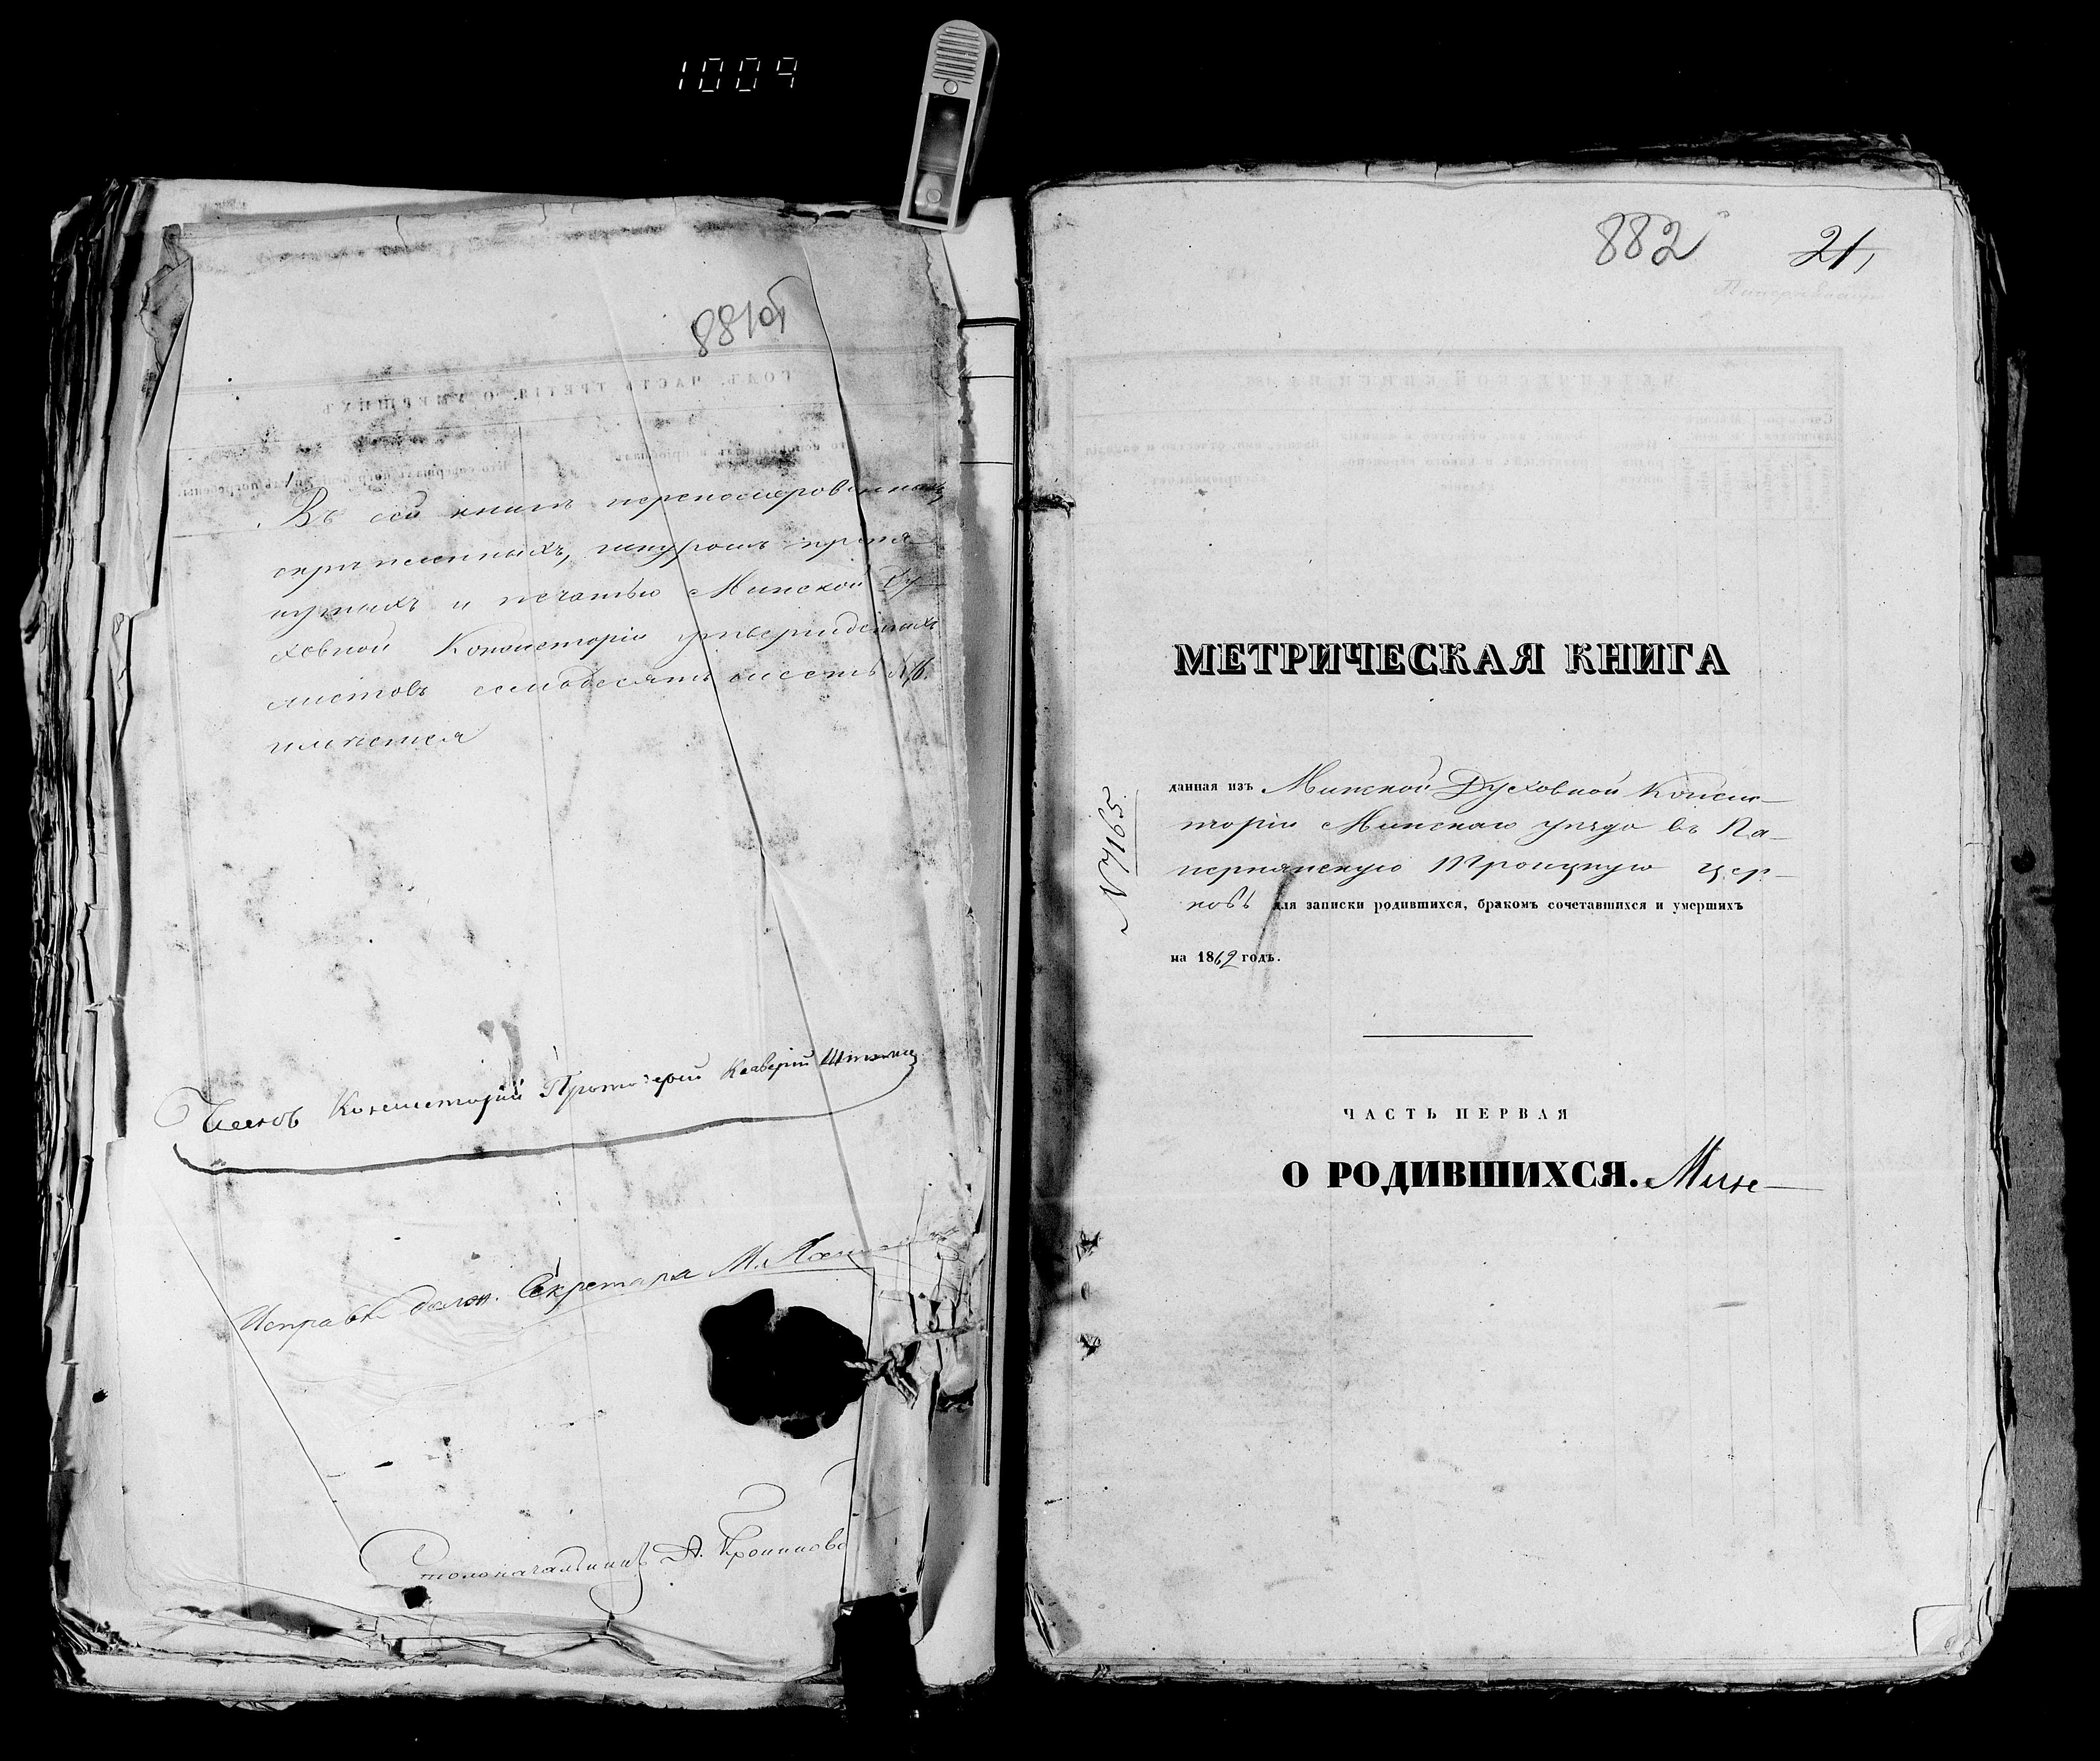 1009
881об
Въ сей книгѣ перенумерованныхъ,
скрѣпленныхъ, шнуромъ прошну-
и печатью Минской Ду-
ховной Консисторіи утвержденныхъ
листовъ семьдесятъ
имѣется
Членъ Консисторіи Протоіерей Ксаверій
Исправл. долж. Секретаря М.
Столоначальникъ А.
882
21,
МЕТРИЧЕСКАЯ КНИГА
№ 7165.
данная изъ Минской Духовной Консис-
торіи Минскаго уѣзда въ Па-
пернянскую Троицкую цер-
ковь для записки родившихся, бракомъ сочетавшихся и умершихъ
на 1862 годъ.
ЧАСТЬ ПЕРВАЯ
О РОДИВШИХСЯ. Мин-